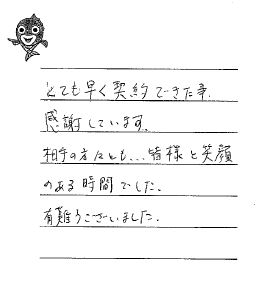 とても早く契約できた事.
感謝しています.
相手の方々とも...皆様と笑顔
のある時間でした.
有難うございました.